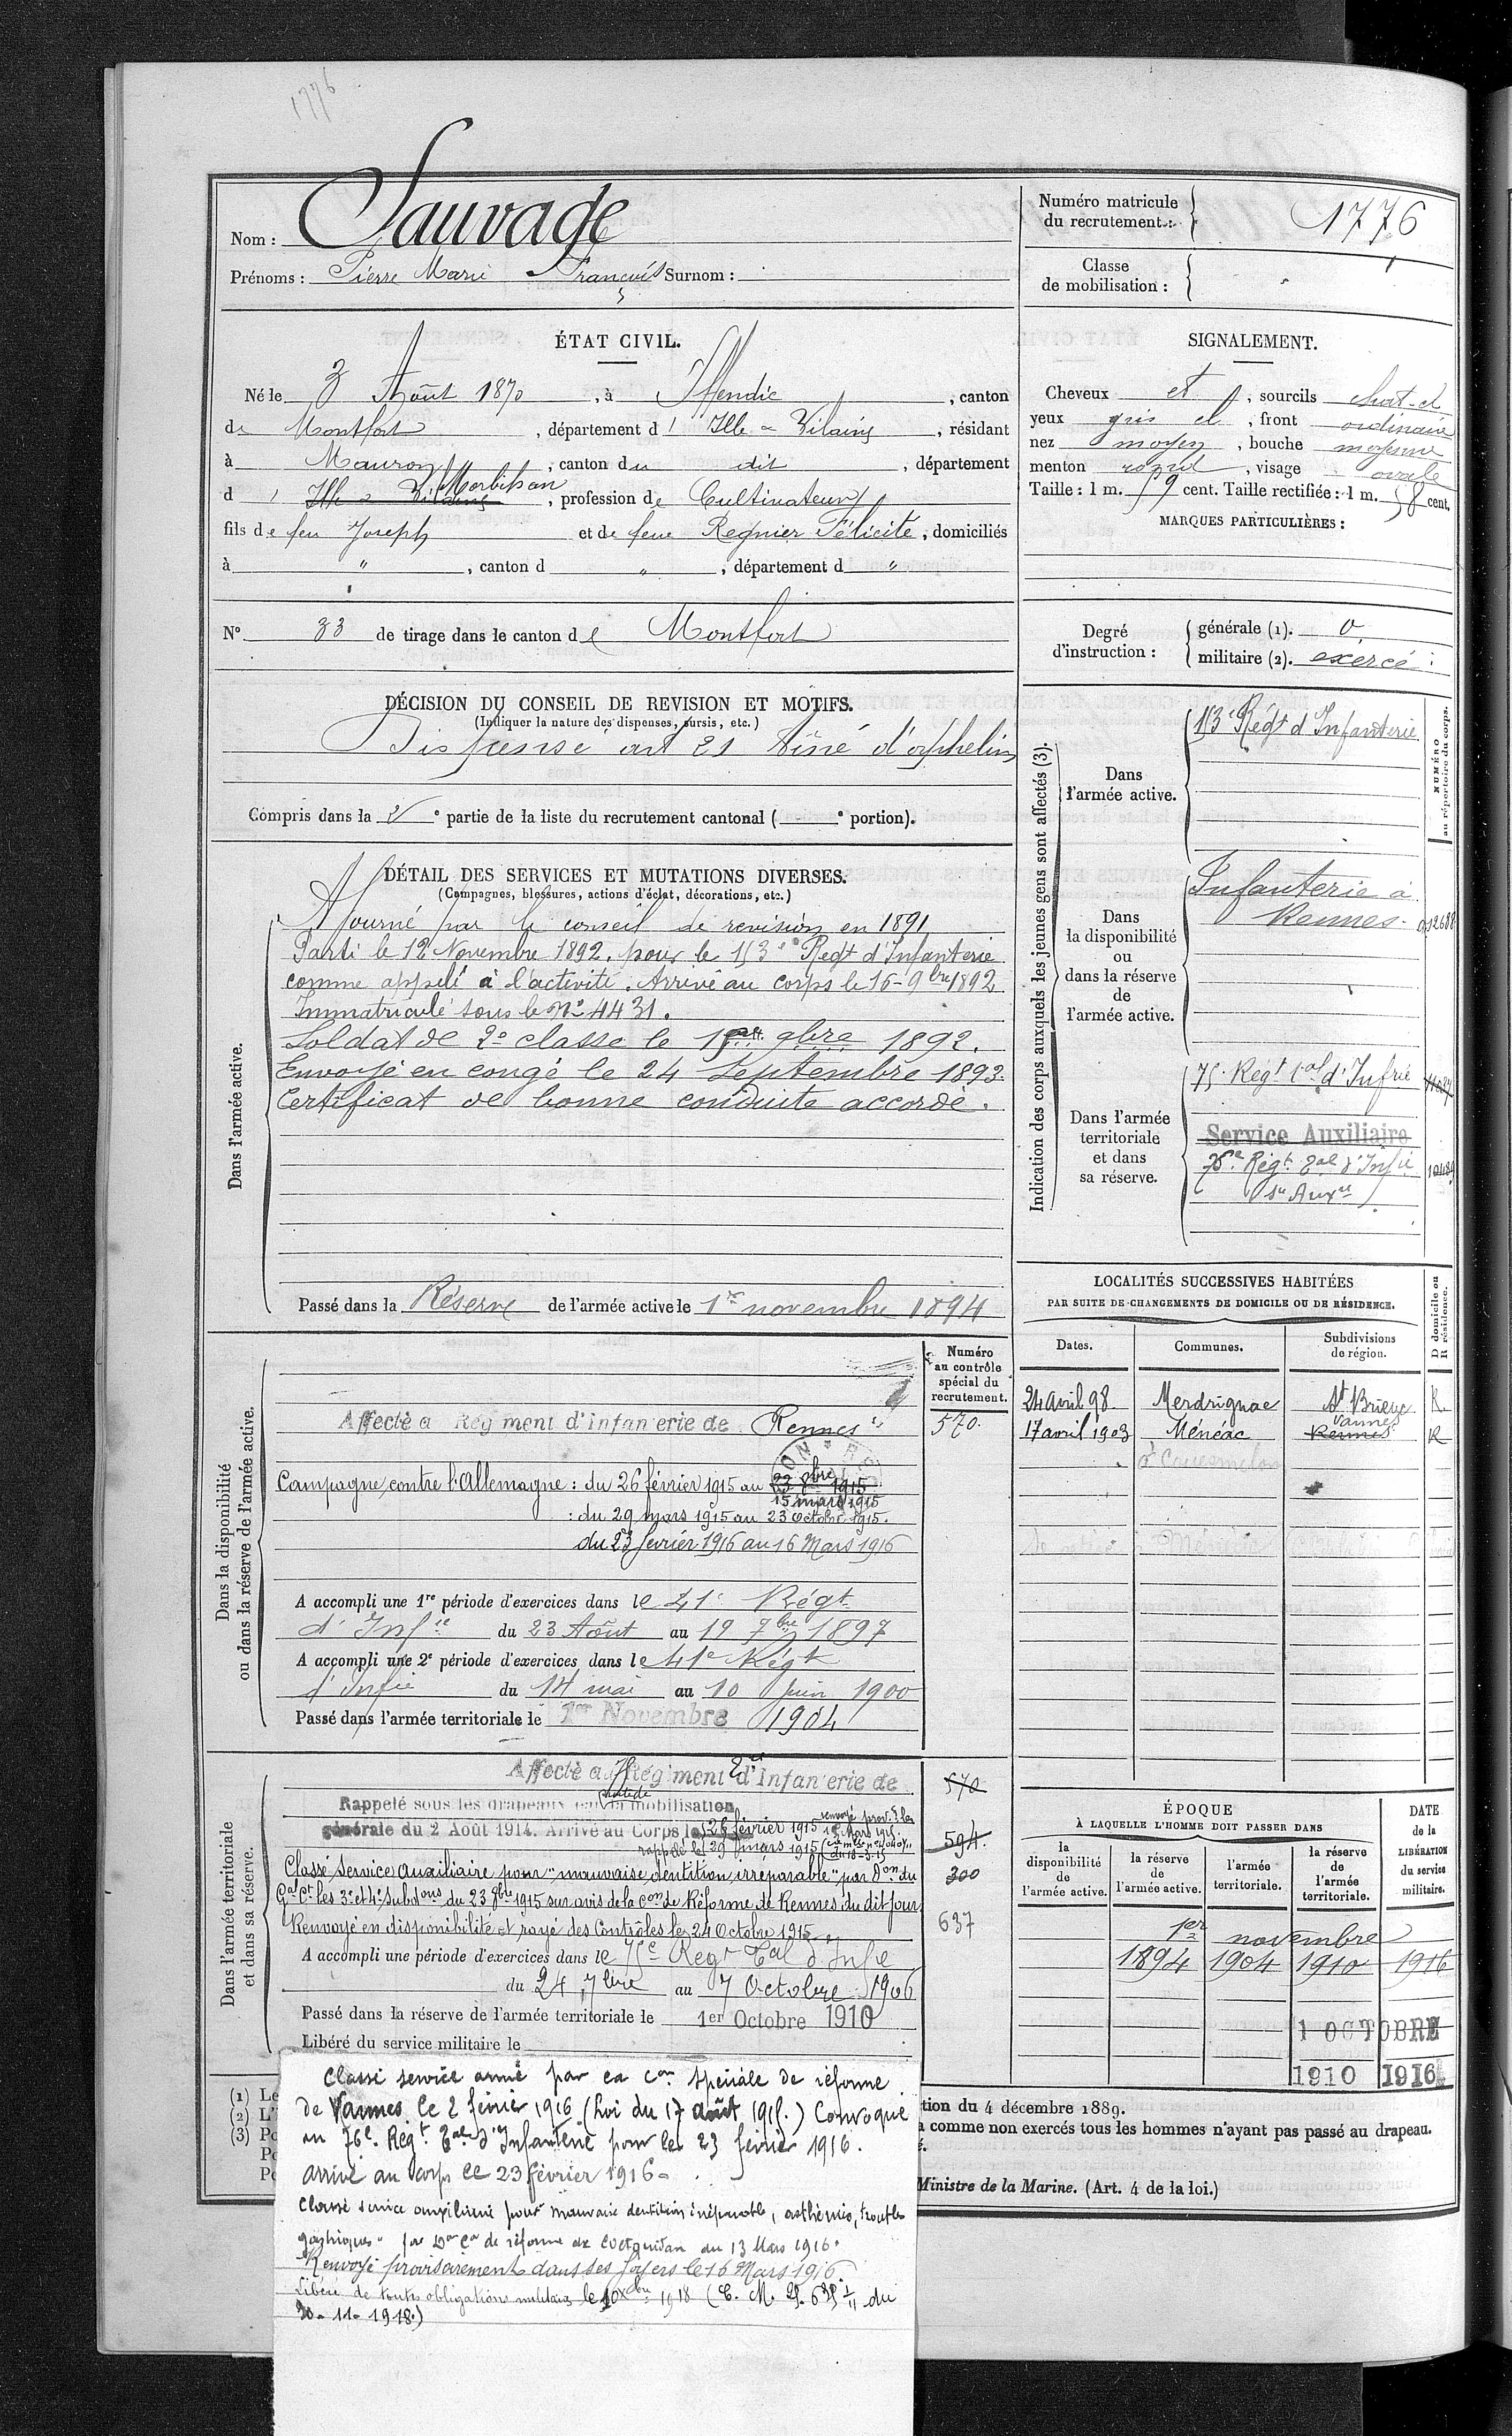 1776
Nom : Sauvage
Prénoms : Pierre Marie François Surnom :
Numéro matricule du recrutement : 1776
Classe de mobilisation :
ÉTAT CIVIL.
Né le 3 Août 1870, à Iffendic, canton
de Montfort, département d' Ille & Vilaine, résidant
à Mauron, canton du dit, département
d Ille & Vilaine Morbihan, profession de Cultivateur
fils de feu Joseph et de feue Regnier Félicité, domiciliés
à " , canton d " , département d "
SIGNALEMENT.
Cheveux et , sourcils chat-cl
yeux gris cl , front ordinaire
nez moyen , bouche moyenne
menton rond , visage ovale
Taille : 1 m. 59 cent. Taille rectifiée : 1 m. 58 cent.
MARQUES PARTICULIÈRES :
N° 33 de tirage dans le canton de Montfort
Degré d'instruction :
générale (1). 0
militaire (2). exercé
DÉCISION DU CONSEIL DE REVISION ET MOTIFS.
(Indiquer la nature des dispenses, sursis, etc.)
Dispensé art 21 aîné d'orphelins
Compris dans la 2 e partie de la liste du recrutement cantonal ( e portion).
DÉTAIL DES SERVICES ET MUTATIONS DIVERSES.
(Campagnes, blessures, actions d'éclat, décorations, etc.)
Dans l'armée active.
Ajourné par le conseil de revision en 1891
Parti le 12 Novembre 1892, pour le 153e Regt d'Infanterie
comme appelé à l'activité. Arrivé au corps le 16-9bre 1892
Immatriculé sous le No 4431.
Soldat de 2e classe le 9bre 1892.
Envoyé en congé le 24 Septembre 1893.
Certificat de bonne conduite accordé.
Passé dans la Réserve de l'armée active le 1er novembre 1894
Indication des corps auxquels les jeunes gens sont affectés (3).
NUMÉRO au répertoire du corps.
Dans l'armée active.
153e Régt d'Infanterie
Dans la disponibilité ou dans la réserve de l'armée active.
Infanterie à
Rennes.
Dans l'armée territoriale et dans sa réserve.
75e Régt tal d'Infrie
Service Auxiliaire
76e Régt Tal d'Infie
LOCALITÉS SUCCESSIVES HABITÉES
PAR SUITE DE CHANGEMENTS DE DOMICILE OU DE RÉSIDENCE.
D domicile ou R résidence.
Dates. Communes. Subdivisions de région.
24 avril 98 Merdrignac St Brieuc R
17 avril 1903 Ménéac Rennes Vannes R
Dans la disponibilité ou dans la réserve de l'armée active.
Numéro au contrôle spécial du recrutement.
Affecté a Rég ment d'infan erie de Rennes 570.
Campagne contre l'Allemagne : du 26 février 1915 au 23 8bre 1915
15 mars 1915
: du 29 mars 1915 au 23 octobre 1915.
du 23 février 1916 au 16 Mars 1916
A accompli une 1re période d'exercices dans le 41e Régt
d'Infie du 23 Août au 19 7bre 1897
A accompli une 2e période d'exercices dans le 41e Régt
d'Infie du 14 mai au 10 Juin 1900
Passé dans l'armée territoriale le 1er Novembre 1904
Dans l'armée territoriale et dans sa réserve.
Affecté au Rég ment d'Infan erie de 570
Rappelé sous les drapeaux mobilisation
générale du 2 Août 1914. Arrivé au Corps le 26 février 1915
rappelé le 29 mars 1915
594.
Classé Service auxiliaire pour "mauvaise dentition irréparable" par Don du 300
Gal Ct les 3e et 4e Subdons du 23 8bre 1915 sur avis de la Con de Réforme de Rennes du dit jour
Renvoyé en disponibilité et rayé des Contrôles le 24 Octobre 1915 637
A accompli une période d'exercices dans le 75e Régt Tal d'Infie
du 24 7bre au 7 Octobre 1906
Passé dans la réserve de l'armée territoriale le 1er Octobre 1910
Libéré du service militaire le
ÉPOQUE
À LAQUELLE L'HOMME DOIT PASSER DANS
la disponibilité de l'armée active. la réserve de l'armée active. l'armée territoriale. la réserve de l'armée territoriale.
DATE de la LIBÉRATION du service militaire.
1er novembre
1894 1904 1910 1916
1 OCTOBRE
1910 1916
Classé service armé par la Con spéciale de réforme
de Vannes le 2 février 1916 (Loi du 17 août 1915.) Convoqué
au 76e Régt Tal d'Infanterie pour le 23 février 1916.
arrivé au corps le 23 février 1916.
Classé service auxiliaire pour mauvaise dentition irréparable, asthénie, troubles
gastriques" de réforme de Coëtquidan du 13 Mars 1916.
Renvoyé provisoirement dans ses foyers le 16 Mars 1916.
Libéré de toutes obligations militaires le 10 Xbre 1918 (C. M. du
30-11-1918.)
(1) Le
(2) L'
(3) Po
Po
Po
tion du 4 décembre 1889.
a comme non exercés tous les hommes n'ayant pas passé au drapeau.
é.
Ministre de la Marine. (Art. 4 de la loi.)